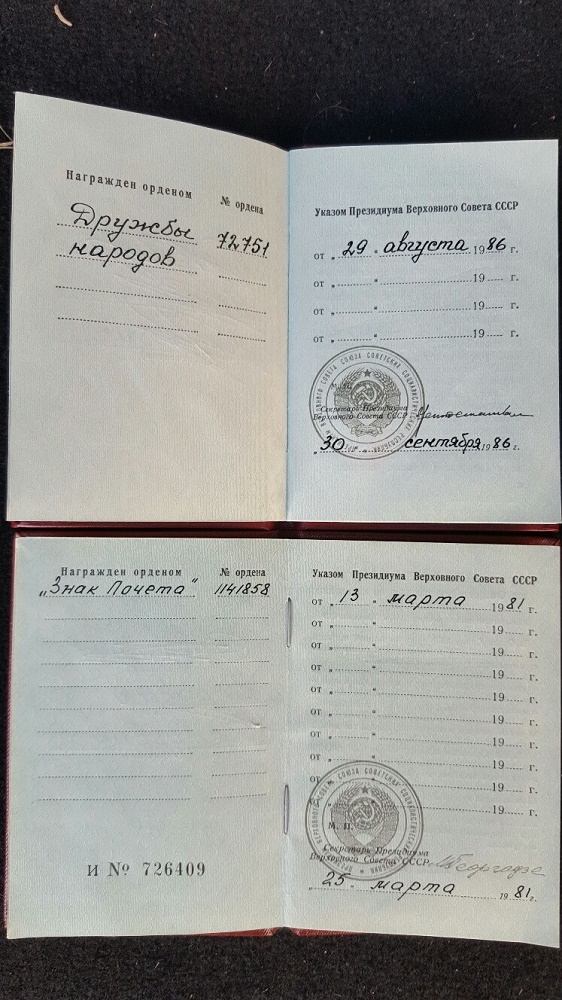 Награжден орденом № ордена
Дружбы 72751
народов
Указом Президиума Верховного Совета СССР
от „ 29 “ августа 1986 г.
от „ “ 19 г.
от „ “ 19 г.
от „ “ 19 г.
Секретарь Президиума
Верховного Совета СССР
„ 30 “ сентября 1986 г.
Награжден орденом № ордена
„Знак Почета“ 1141858
И № 726409
Указом Президиума Верховного Совета СССР
от „ 13 “ марта 1981 г.
от „ “ 19 г.
от „ “ 19 г.
от „ “ 19 г.
от „ “ 19 г.
от „ “ 19 г.
от „ “ 19 г.
от „ “ 19 г.
от „ “ 19 г.
от „ “ 19 г.
М. П.
Секретарь Президиума
Верховного Совета СССР МГеоргадзе
„ 25 “ марта 1981 г.